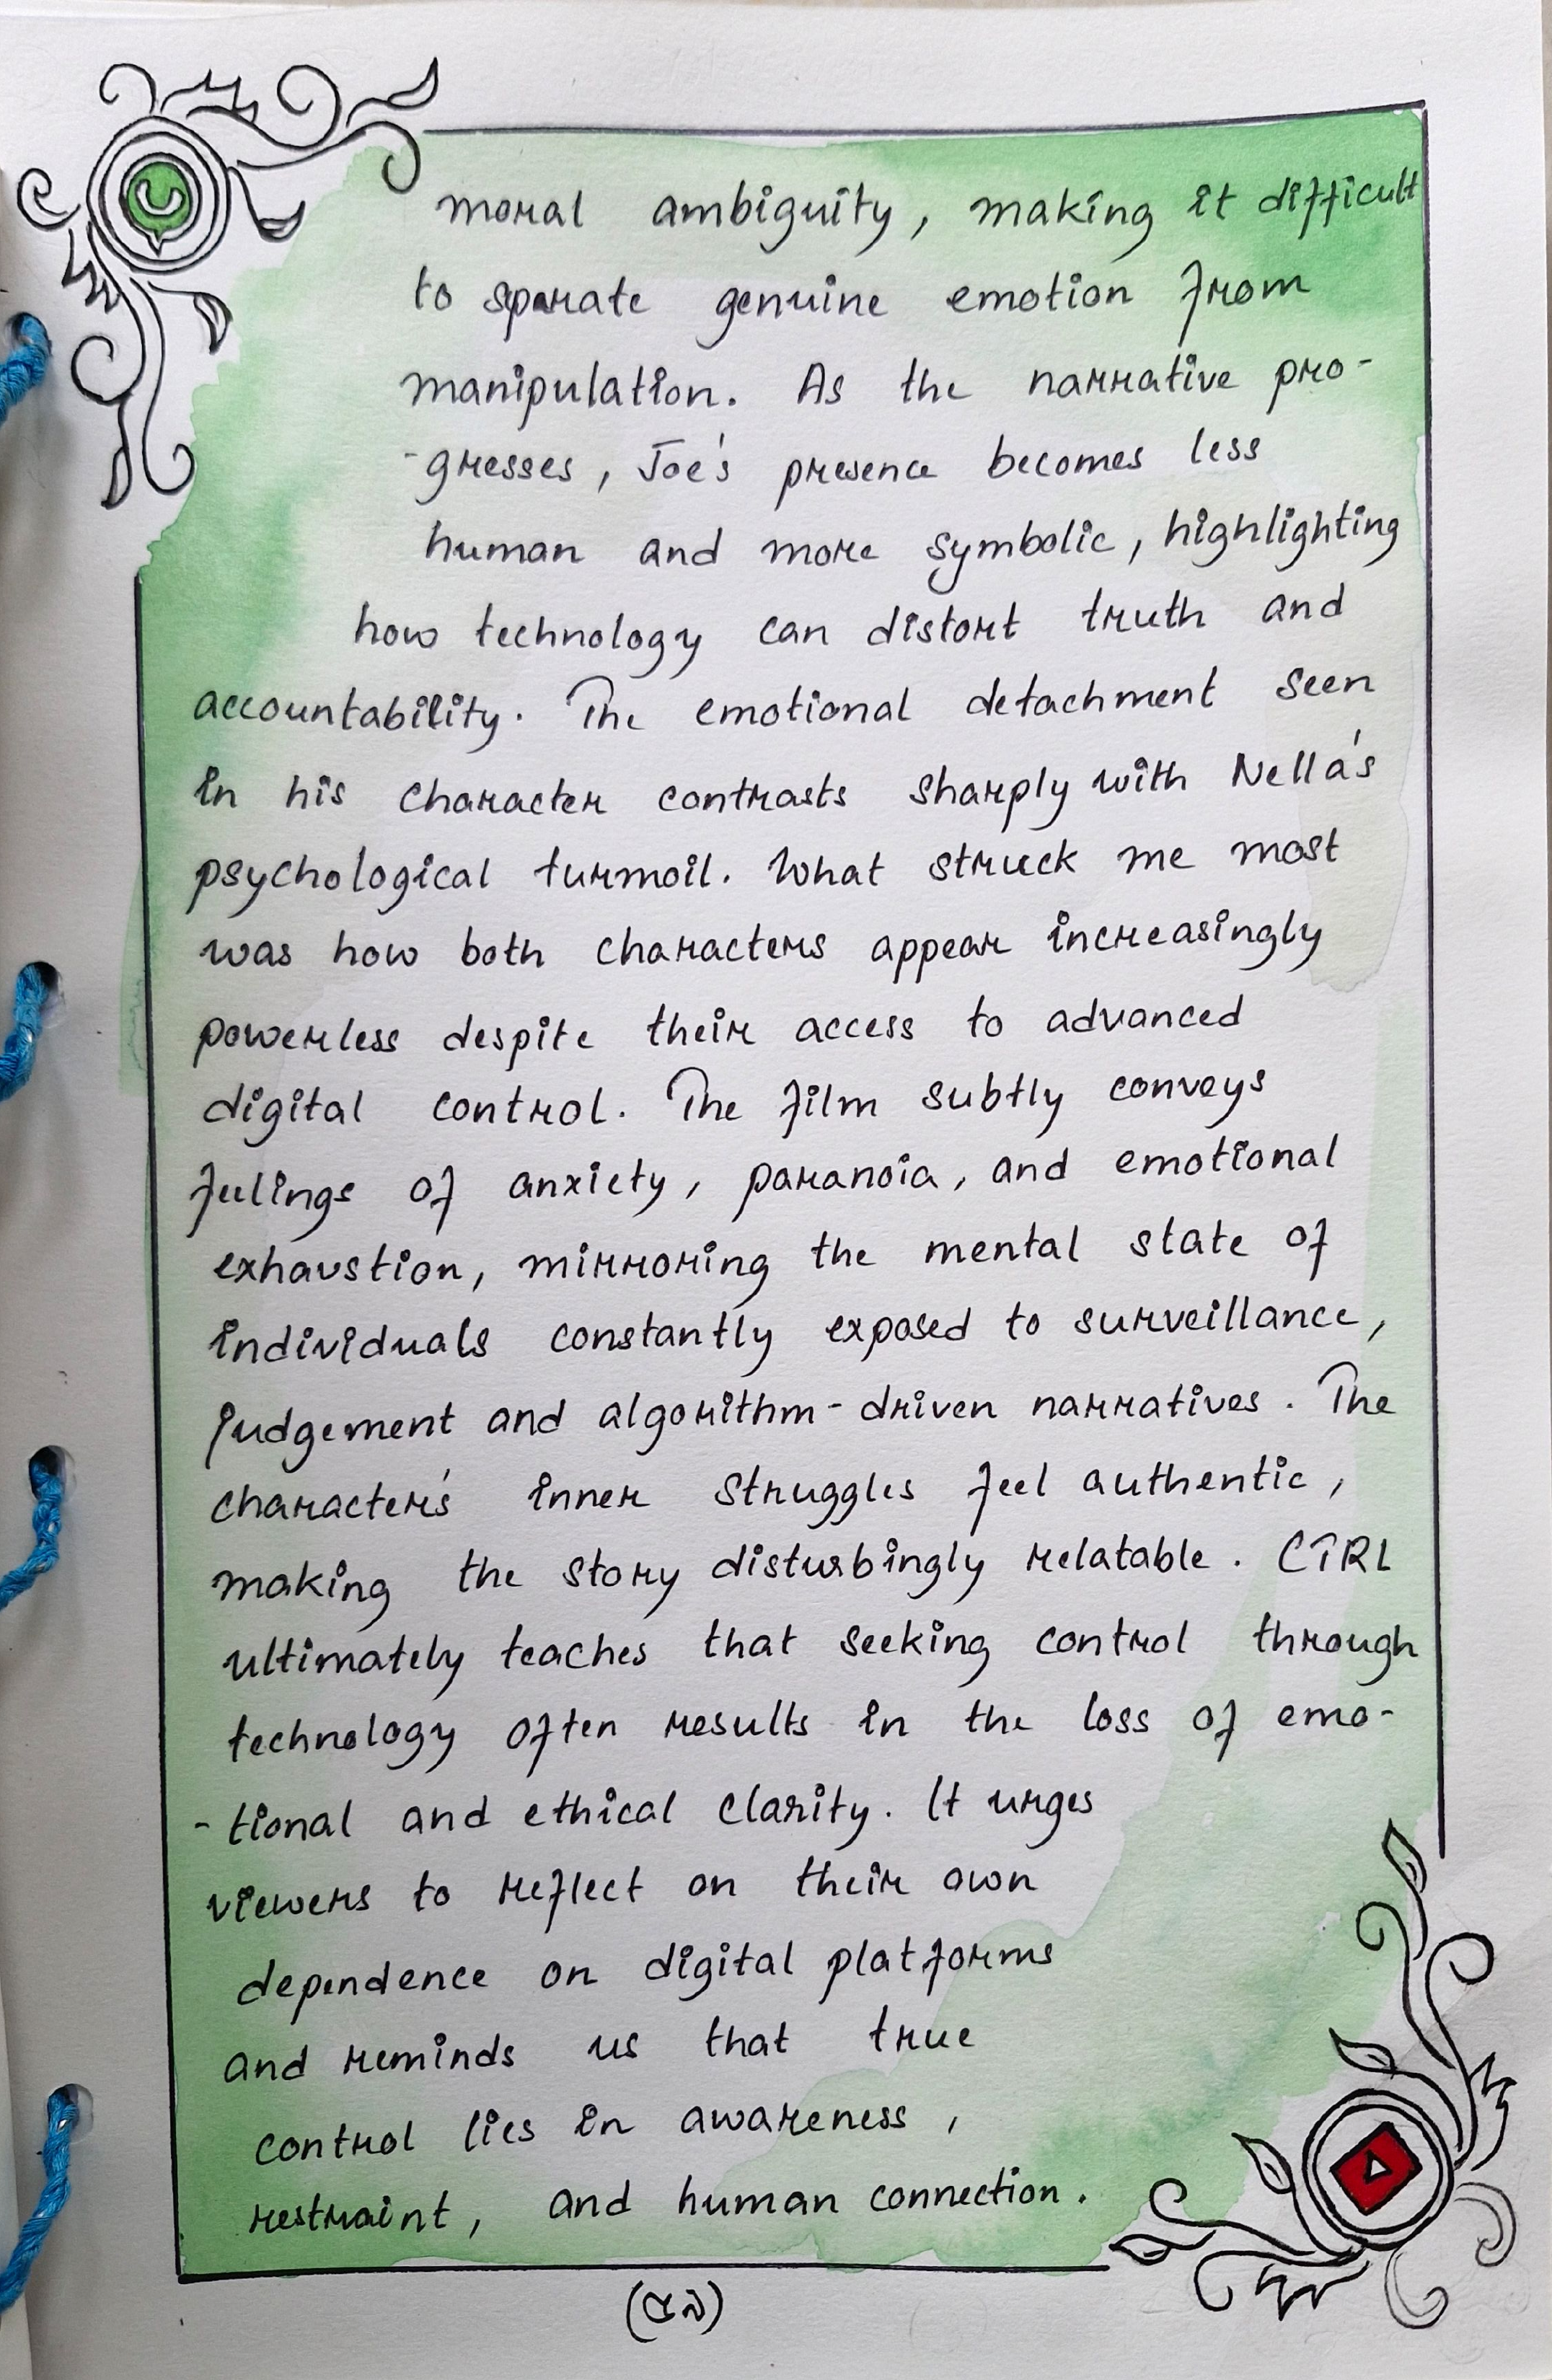 moral ambiguity, making it difficult
to sparate genuine emotion from
manipulation. As the narrative pro-
-gresses, Joe's presence becomes less
human and more symbolic, highlighting
how technology can distort truth and
accountability. The emotional detachment seen
in his character contrasts sharply with Nella's
psychological turmoil. What struck me most
was how both characters appear increasingly
powerless despite their access to advanced
digital control. The film subtly conveys
feelings of anxiety, paranoia, and emotional
exhaustion, mirroring the mental state of
individuals constantly exposed to surveillance,
judgement and algorithm-driven narratives. The
character's inner struggles feel authentic,
making the story disturbingly relatable. CTRL
ultimately teaches that seeking control through
technology often results in the loss of emo-
-tional and ethical clarity. It urges
viewers to reflect on their own
dependence on digital platforms
and reminds us that true
control lies in awareness,
restraint, and human connection.